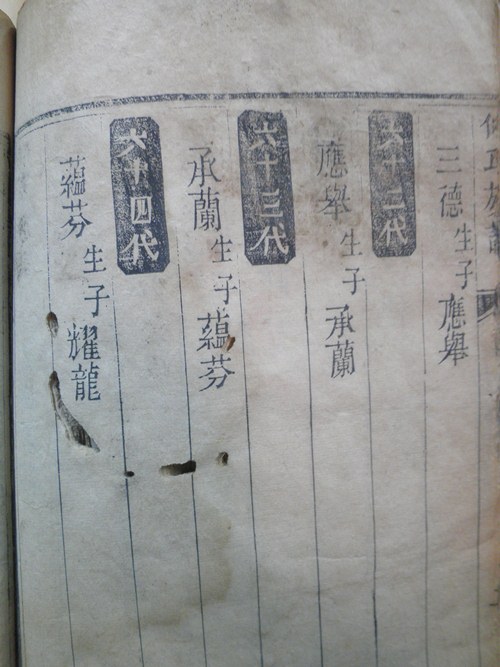 三德生子應舉
六十二代
應舉生子承蘭
六十三代
承蘭生子蘊芬
六十四代
蘊芬生子耀龍